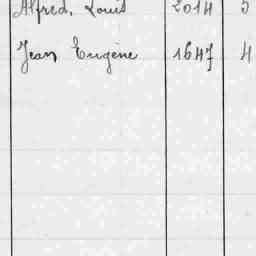 Alfred, Louis 2014 5
Jean Eugène 1647 4